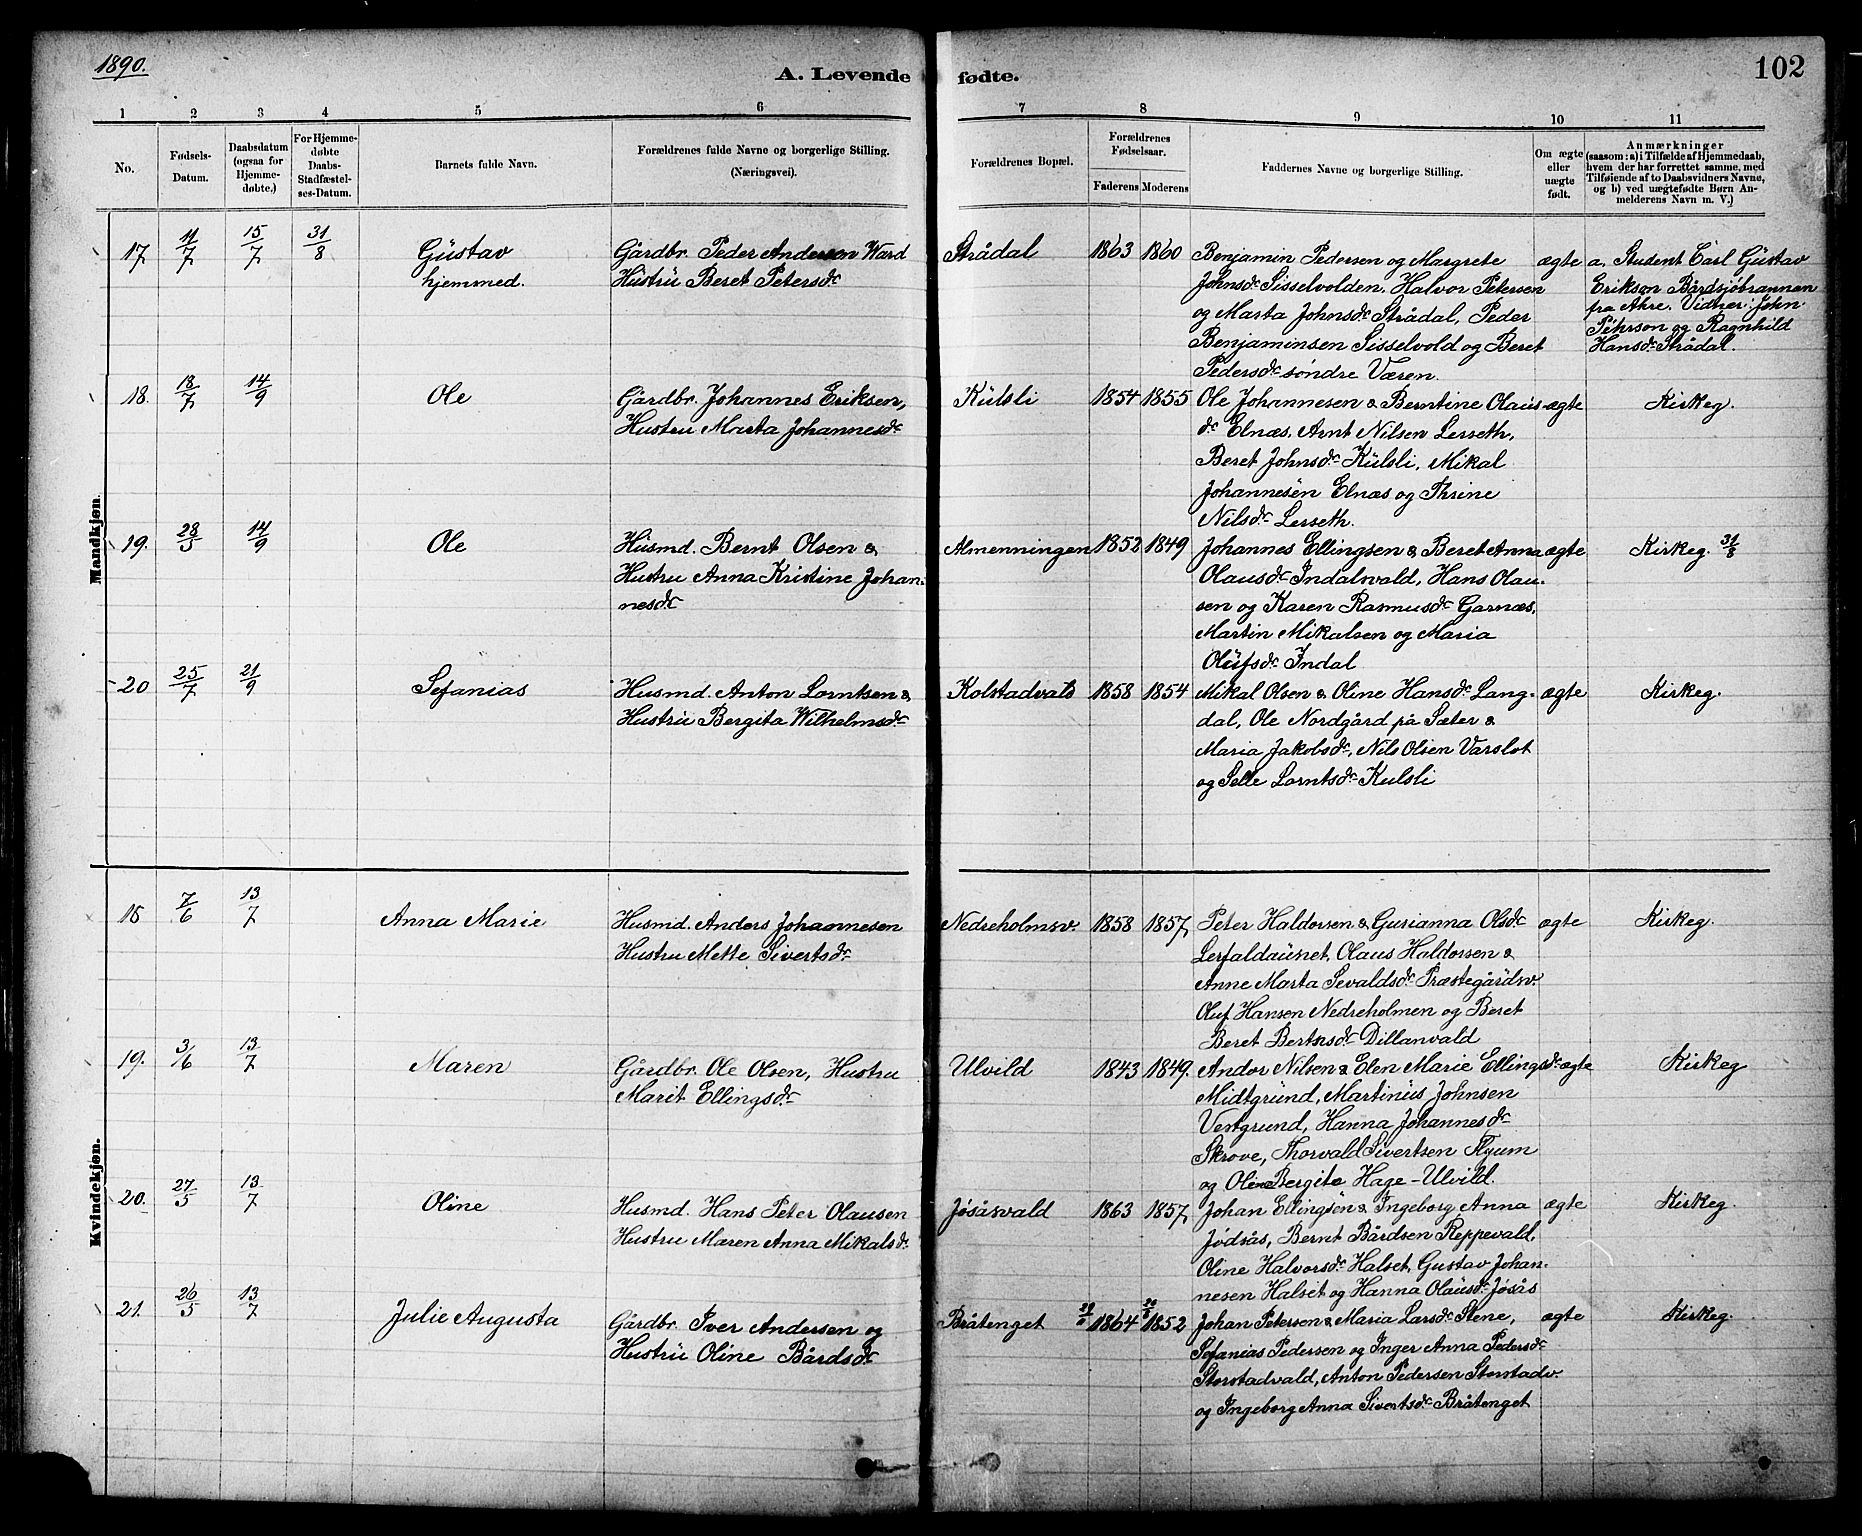 1890.
A. Levende fødte.
102
1 2 3 4 5 6 7 8 9 10 11
No.
Fødsels-
Datum.
Daabsdatum
(ogsaa for
Hjemme-
døbte.)
For Hjemme-
døbte
Daabs-
Stadfæstel-
ses-Datum.
Barnets fulde Navn.
Forældrenes fulde Navne og borgerlige Stilling.
(Næringsvei).
Forældrenes Bopæl.
Forældrenes
Fødselsaar.
Faderens Moderens
Faddernes Navne og borgerlige Stilling.
Om ægte
eller
uægte
født.
Anmærkninger
(saasom: a) i Tilfælde af Hjemmedaab,
hvem der har forrettet samme, med
Tilføiende af to Daabsvidners Navne,
og b) ved uægtefødte Børn An-
melderens Navn m. V.)
Mandkjøn.
17 11/7 15/7 31/8
Gustav
hjemmed.
Gårdbr. Peder Anderson Ward
Hustru Beret Petersdr
Strådal 1863 1860
Benjamin Pedersen og Margrete
Johnsdr Sisselvolden, Halvor Petersen
og Marta Johnsdr Strådal, Peder
Benjaminsen Sisselvold og Beret
Pedersdr søndre Væren.
ægte
a. Student Carl Gustav
Erikson Bårdsjöbrannen
fra Åhre. Vidner: John
Pehrson og Ragnhild
Hansdr Strådal.
18. 18/7 14/9
Ole
Gårdbr. Johannes Eriksen,
Hustru Marta Johannesdr
Kulsli 1854 1855
Ole Johannesen & Berntine Olaus
dr Elnæs, Arnt Nilsen Lerseth,
Beret Johnsdr Kulsli, Mikal
Johannesen Elnæs og Thrine
Nilsdr Lerseth.
ægte
Kirkeg.
19. 28/5 14/9
Ole
Husmd. Bernt Olsen &
Hustru Anna Kristine Johan-
nesdr
Almenningen 1852 1849
Johannes Ellingsen & Beret Anna
Olausdr Indalsvald, Hans Olau-
sen og Karen Rasmusdr Garnæs,
Martin Mikalsen og Maria
Olufsdr Indal
ægte
Kirkeg. 31/8
20 25/7 21/9
Sefanias
Husmd. Anton Lorntsen &
Hustru Bergita Wilhelmsdr
Kolstadvals 1858 1854
Mikal Olsen & Oline Hansdr Lang-
dal, Ole Nordgård på Sæter &
Maria Jakobsdr, Nils Olsen Varslot
og Selle Lorntsdr Kulsli
ægte
Kirkeg.
Kvindekjøn.
18 7/6 13/7
Anna Marie
Husmd. Anders Johannesen
Hustru Mette Sivertsdr
Nedreholmsv. 1858 1857
Peter Haldorsen & Gurianna Olsdr
Lerfaldaunet, Olaus Haldorsen &
Anne Marta Sevaldsdr Præstegårdsv.
Oluf Hansen Nedreholmen og Beret
Beret Bertsdr Dillanvald
ægte
Kirkeg.
19. 3/6 13/7
Maren
Gårdbr. Ole Olsen, Hustru
Marit Ellingsdr
Ulvild 1843 1849.
Andor Nilsen & Elen Marie Ellingsdr
Midtgrund, Martinus Johnsen
Vestgrund, Hanna Johannesdr
Skrove, Thorvald Sivertsen Flyum
og Oline Bergite Hage-Ulvild.
ægte
Kirkeg
20. 27/5 13/7
Oline
Husmd. Hans Peter Olausen
Hustru Maren Anna Mikalsdr
Jøsåsvald 1863 1857
Johan Ellingsen & Ingeborg Anna
Jødsås, Bernt Bårdsen Reppevald,
Oline Halvorsdr Halset, Gustav Johan-
nesen Halset og Hanna Olausdr Jøsås
ægte
Kirkeg.
21. 26/5 13/7
Julie Augusta
Gårdbr. Iver Andersen og
Hustru Oline Bårdsdr
Bråtenget 1864 1852
Johan Petersen & Maria Larsdr Stene,
Sefanias Pedersen og Inger Anna Pedersdr
Storstadvald, Anton Pedersen Storstadv.
og Ingeborg Anna Sivertsdr Bråtenget
ægte
Kirkeg.